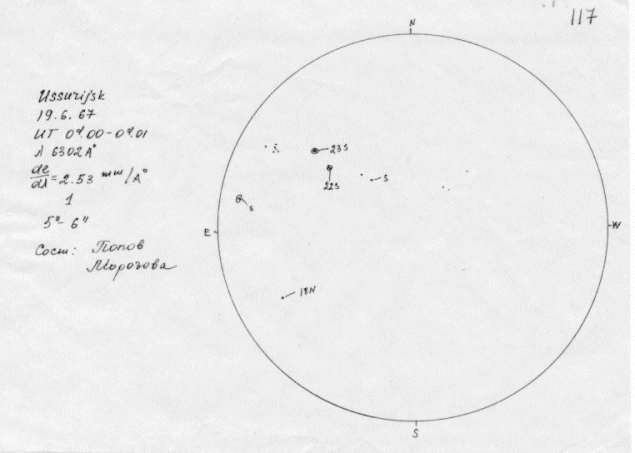 117
N
Ussurijsk
19.6.67
UT 04.00-04.01
λ 6302 A°
de/dλ = 2.53 mm/A°
1
5"- 6"
Сост: Попов
Морозова
23S
22S
S
S
E
W
18N
S